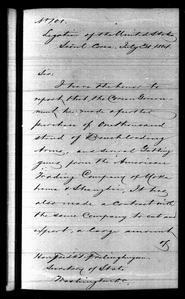 No 101.
Legation of the United States
Seoul Corea. July 24 1884.
Sir:
I have the honor to
report, that the Corean Govern-
ment, has made a further
purchase of One thousand
stand of Breech-loading
Arms, and several Gatling
guns, from the American
Trading Company of Yoko-
hama & Shanghai, It has
also made a Contract with
the same Company to cut and
export, a large amount
of
Hon Fred'k T. Frelinghuysen
Secretary of State
Washington